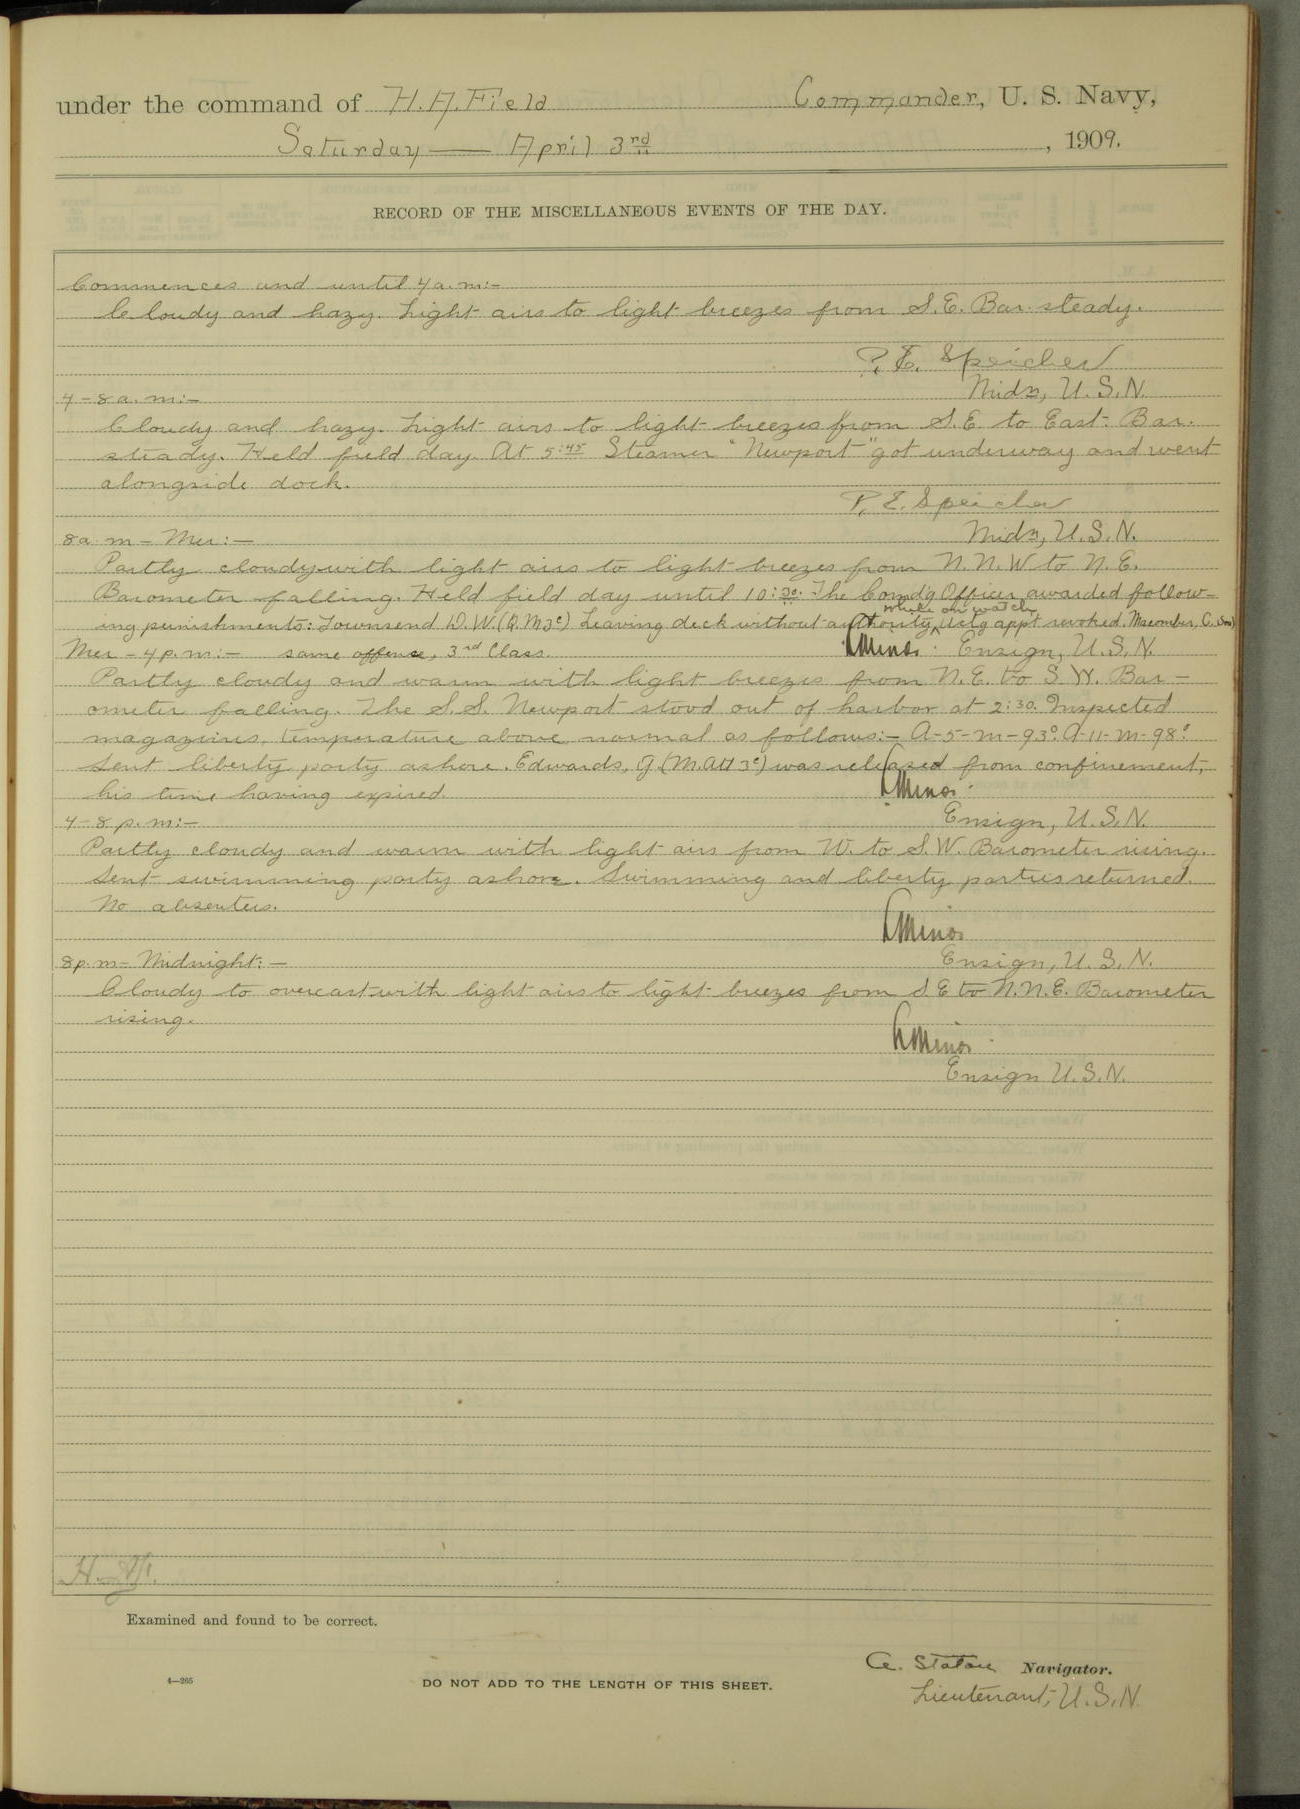 under the command of H. A. Field Commander, U. S. Navy,
Saturday — April 3rd, 1909.
RECORD OF THE MISCELLANEOUS EVENTS OF THE DAY.
Commences and until 4 a.m:-
Cloudy and hazy. Light airs to light breezes from S.E. Bar. steady.
P. E. Speicher
Midn, U.S.N.
4 - 8 a.m:-
Cloudy and hazy. Light airs to light breezes from S.E. to East. Bar.
steady. Held field day. At 5:45 Steamer "Newport" got underway and went
alongside dock.
P. E. Speicher
Midn, U.S.N.
8 a.m - Mer:-
Partly cloudy with light airs to light breezes from N.N.W to N.E.
Barometer falling. Held field day until 10:30. The Comd'g Officer awarded follow-
while on watch
ing punishments: Townsend D.W. (Q.M 3c) Leaving deck without authority ^ Actg appt revoked. Macomber, C. (Sea)
same offense, 3rd Class.
Minor. Ensign, U.S.N.
Mer - 4 p.m:-
Partly cloudy and warm with light breezes from N.E. to S.W. Bar-
ometer falling. The S.S. Newport stood out of harbor at 2:30. Inspected
magazines, temperature above normal as follows:- A-5-M-93° A-11-M-98°
Sent liberty party ashore. Edwards, G. (M.Att 3c) was released from confinement,
his time having expired.
Minor.
Ensign, U.S.N.
4 - 8 p.m:-
Partly cloudy and warm with light airs from W. to S.W. Barometer rising.
Sent swimming party ashore. Swimming and liberty parties returned.
No absentees.
Minor
Ensign, U.S.N.
8 p.m - Midnight:-
Cloudy to overcast with light airs to light breezes from S.E to N.N.E. Barometer
rising.
Minor.
Ensign U.S.N.
Examined and found to be correct.
Navigator.
4—265
DO NOT ADD TO THE LENGTH OF THIS SHEET.
Lieutenant, U.S.N